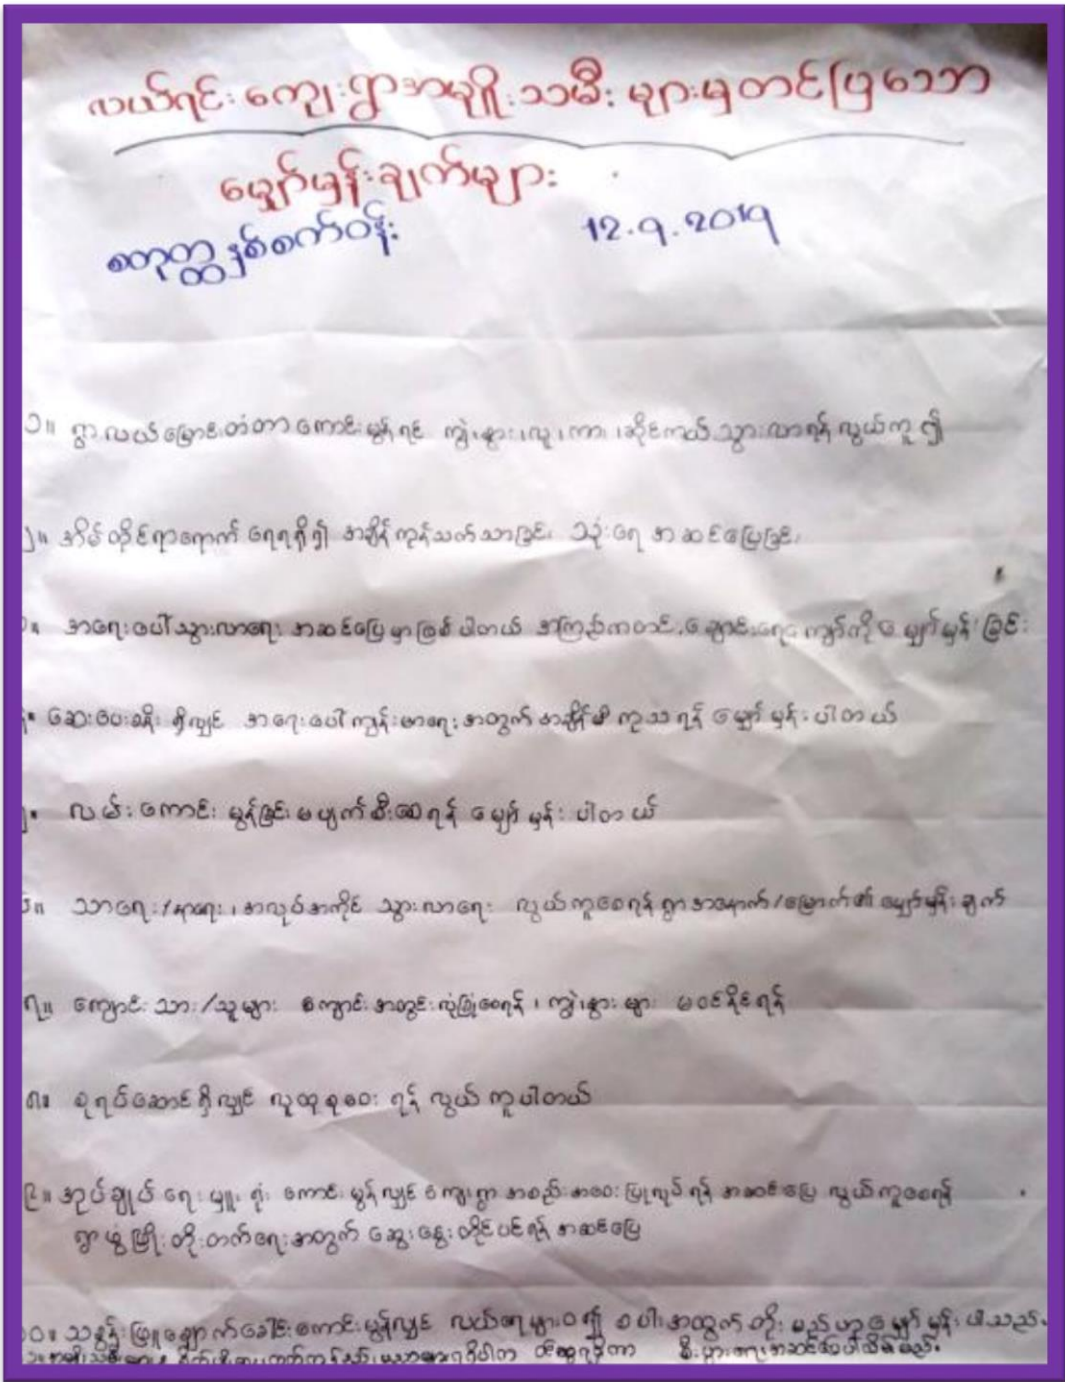 လယ်ရင်းကျေးရွာအမျိုးသမီးများမှတင်ပြသော
မျှော်မှန်းချက်များ
စတုတ္ထနှစ်စက်ဝန်း 12.9.2019
၁။ ရွာလယ်မြောင်းတံတာကောင်းမွန်ရင် ကျွဲ၊နွား၊လူ၊ကား၊ဆိုင်ကယ်သွားလာရန်လွယ်ကူ၍
၂။ အိမ်တိုင်ရာရောက် ရေရရှိ၍ အချိန်ကုန်သက်သာခြင်း သုံးရေ အဆင်ပြေခြင်း
အရေးပေါ်သွားလာရေး အဆင်ပြေမှာဖြစ်ပါတယ် အကြည်ကတင်း ချောင်းရေကျော်ကိုမျှော်မှန်းခြင်း
ဆေးပေးခန်း ရှိလျှင် အရေးပေါ်ကျန်းမာရေးအတွက် အချိန်မီကုသရန် မျှော်မှန်းပါတယ်
လမ်းကောင်းမွန်ခြင်း မပျက်စီးစေရန် မျှော်မှန်းပါတယ်
သာရေး/နာရေး၊အလုပ်အကိုင် သွားလာရေး လွယ်ကူစေရန် ရွာအနောက်/မြောက်၏မျှော်မှန်းချက်
၇။ ကျောင်းသား/သူများ ကျောင်းအတွင်းလုံခြုံစေရန်၊ကျွဲ၊နွားများ မဝင်နိုင်ရန်
၈။ စုရပ်ဆောင်ရှိလျှင် လူထုစုဝေးရန် လွယ်ကူပါတယ်
၉။ အုပ်ချုပ်ရေးမှူးရုံး ကောင်းမွန်လျှင် ကျေးရွာအစည်းအဝေးပြုလုပ်ရန် အဆင်ပြေ လွယ်ကူစေရန်
ရွာဖွံ့ဖြိုးတိုးတက်ရေးအတွက် ဆွေးနွေးတိုင်ပင်ရန် အဆင်ပြေ
၁၀။ သခွန်းဖြူချောက်ခေါင်းကောင်းမွန်လျှင် လယ်ရေများဝ၍ စပါးအထွက်တိုးမည်ဟုမျှော်မှန်းပါသည်။
စီးပွားရေးအဆင်ပြေပါလိမ့်မည်။